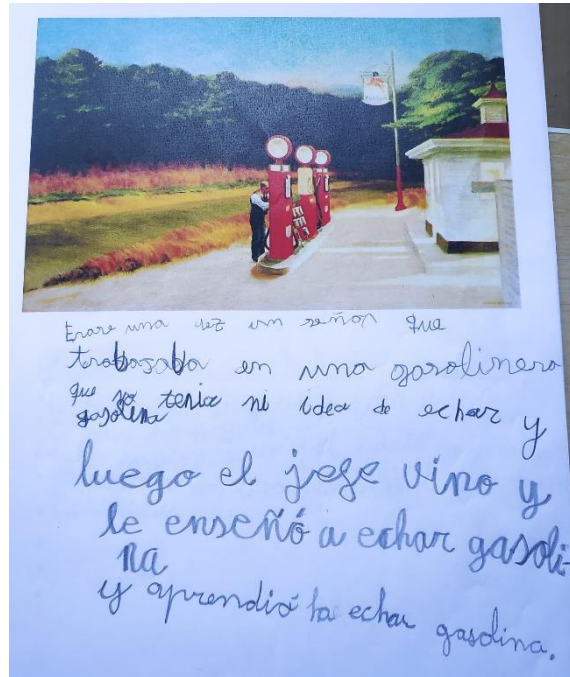 Erase una vez un señor que
trabajaba en una gasolinera
que no tenia ni idea de echar y
gasolina
luego el jefe vino y
le enseñó a echar gasoli-
na
y aprendió ha echar gasolina.